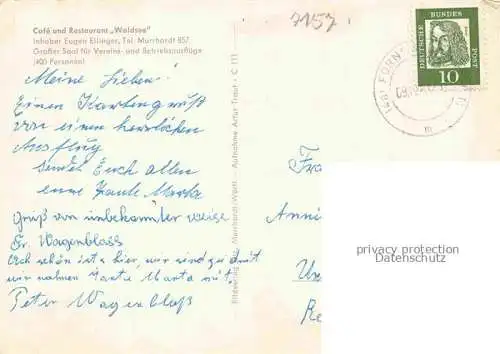 Café und Restaurant „Waldsee"
Inhaber Eugen Ellinger, Tel. Murrhardt 857
Großer Saal für Vereins- und Betriebsausflüge
(400 Personen)
7157
DEUTSCHE BUNDES POST
10
Meine Lieben!
Einen Kartengruß
von einem herrlichen
Ausflug
sendet Euch allen
eure Tante Marta
Gruß von unbekannter weise
Fr. Wagenblass
Ach schön ists hier wir sind zu dritt
wir nahmen Tante Marta mit
Peter Wagenblaß
Aufnahme Artur Traut · C 111
Murrhardt-Württ.
Fra
Anni
Un
Re
privacy protection
Datenschutz